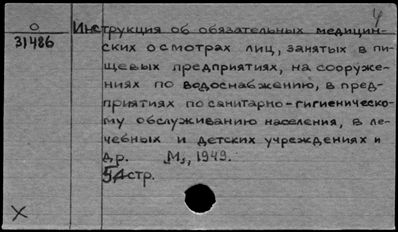 4
О
31486
Инструкция об обязательных медицин-
ских осмотрах лиц, занятых в пи-
щевых предприятиях, на сооруже-
ниях по водоснабжению, в пред-
приятиях по санитарно-гигиеническо-
му обслуживанию населения, в ле-
чебных и детских учреждениях и
др. М., 1949.
стр.
X